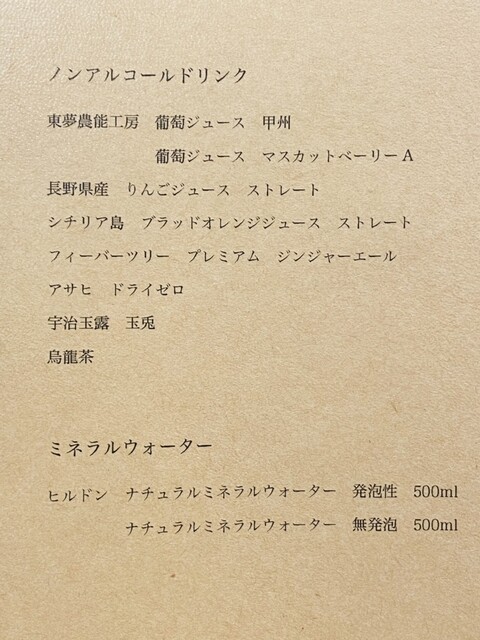 ノンアルコールドリンク
東夢農能工房　葡萄ジュース　甲州
葡萄ジュース　マスカットベーリーA
長野県産　りんごジュース　ストレート
シチリア島　ブラッドオレンジジュース　ストレート
フィーバーツリー　プレミアム　ジンジャーエール
アサヒ　ドライゼロ
宇治玉露　玉兎
烏龍茶
ミネラルウォーター
ヒルドン　ナチュラルミネラルウォーター　発泡性　500ml
ナチュラルミネラルウォーター　無発泡　500ml